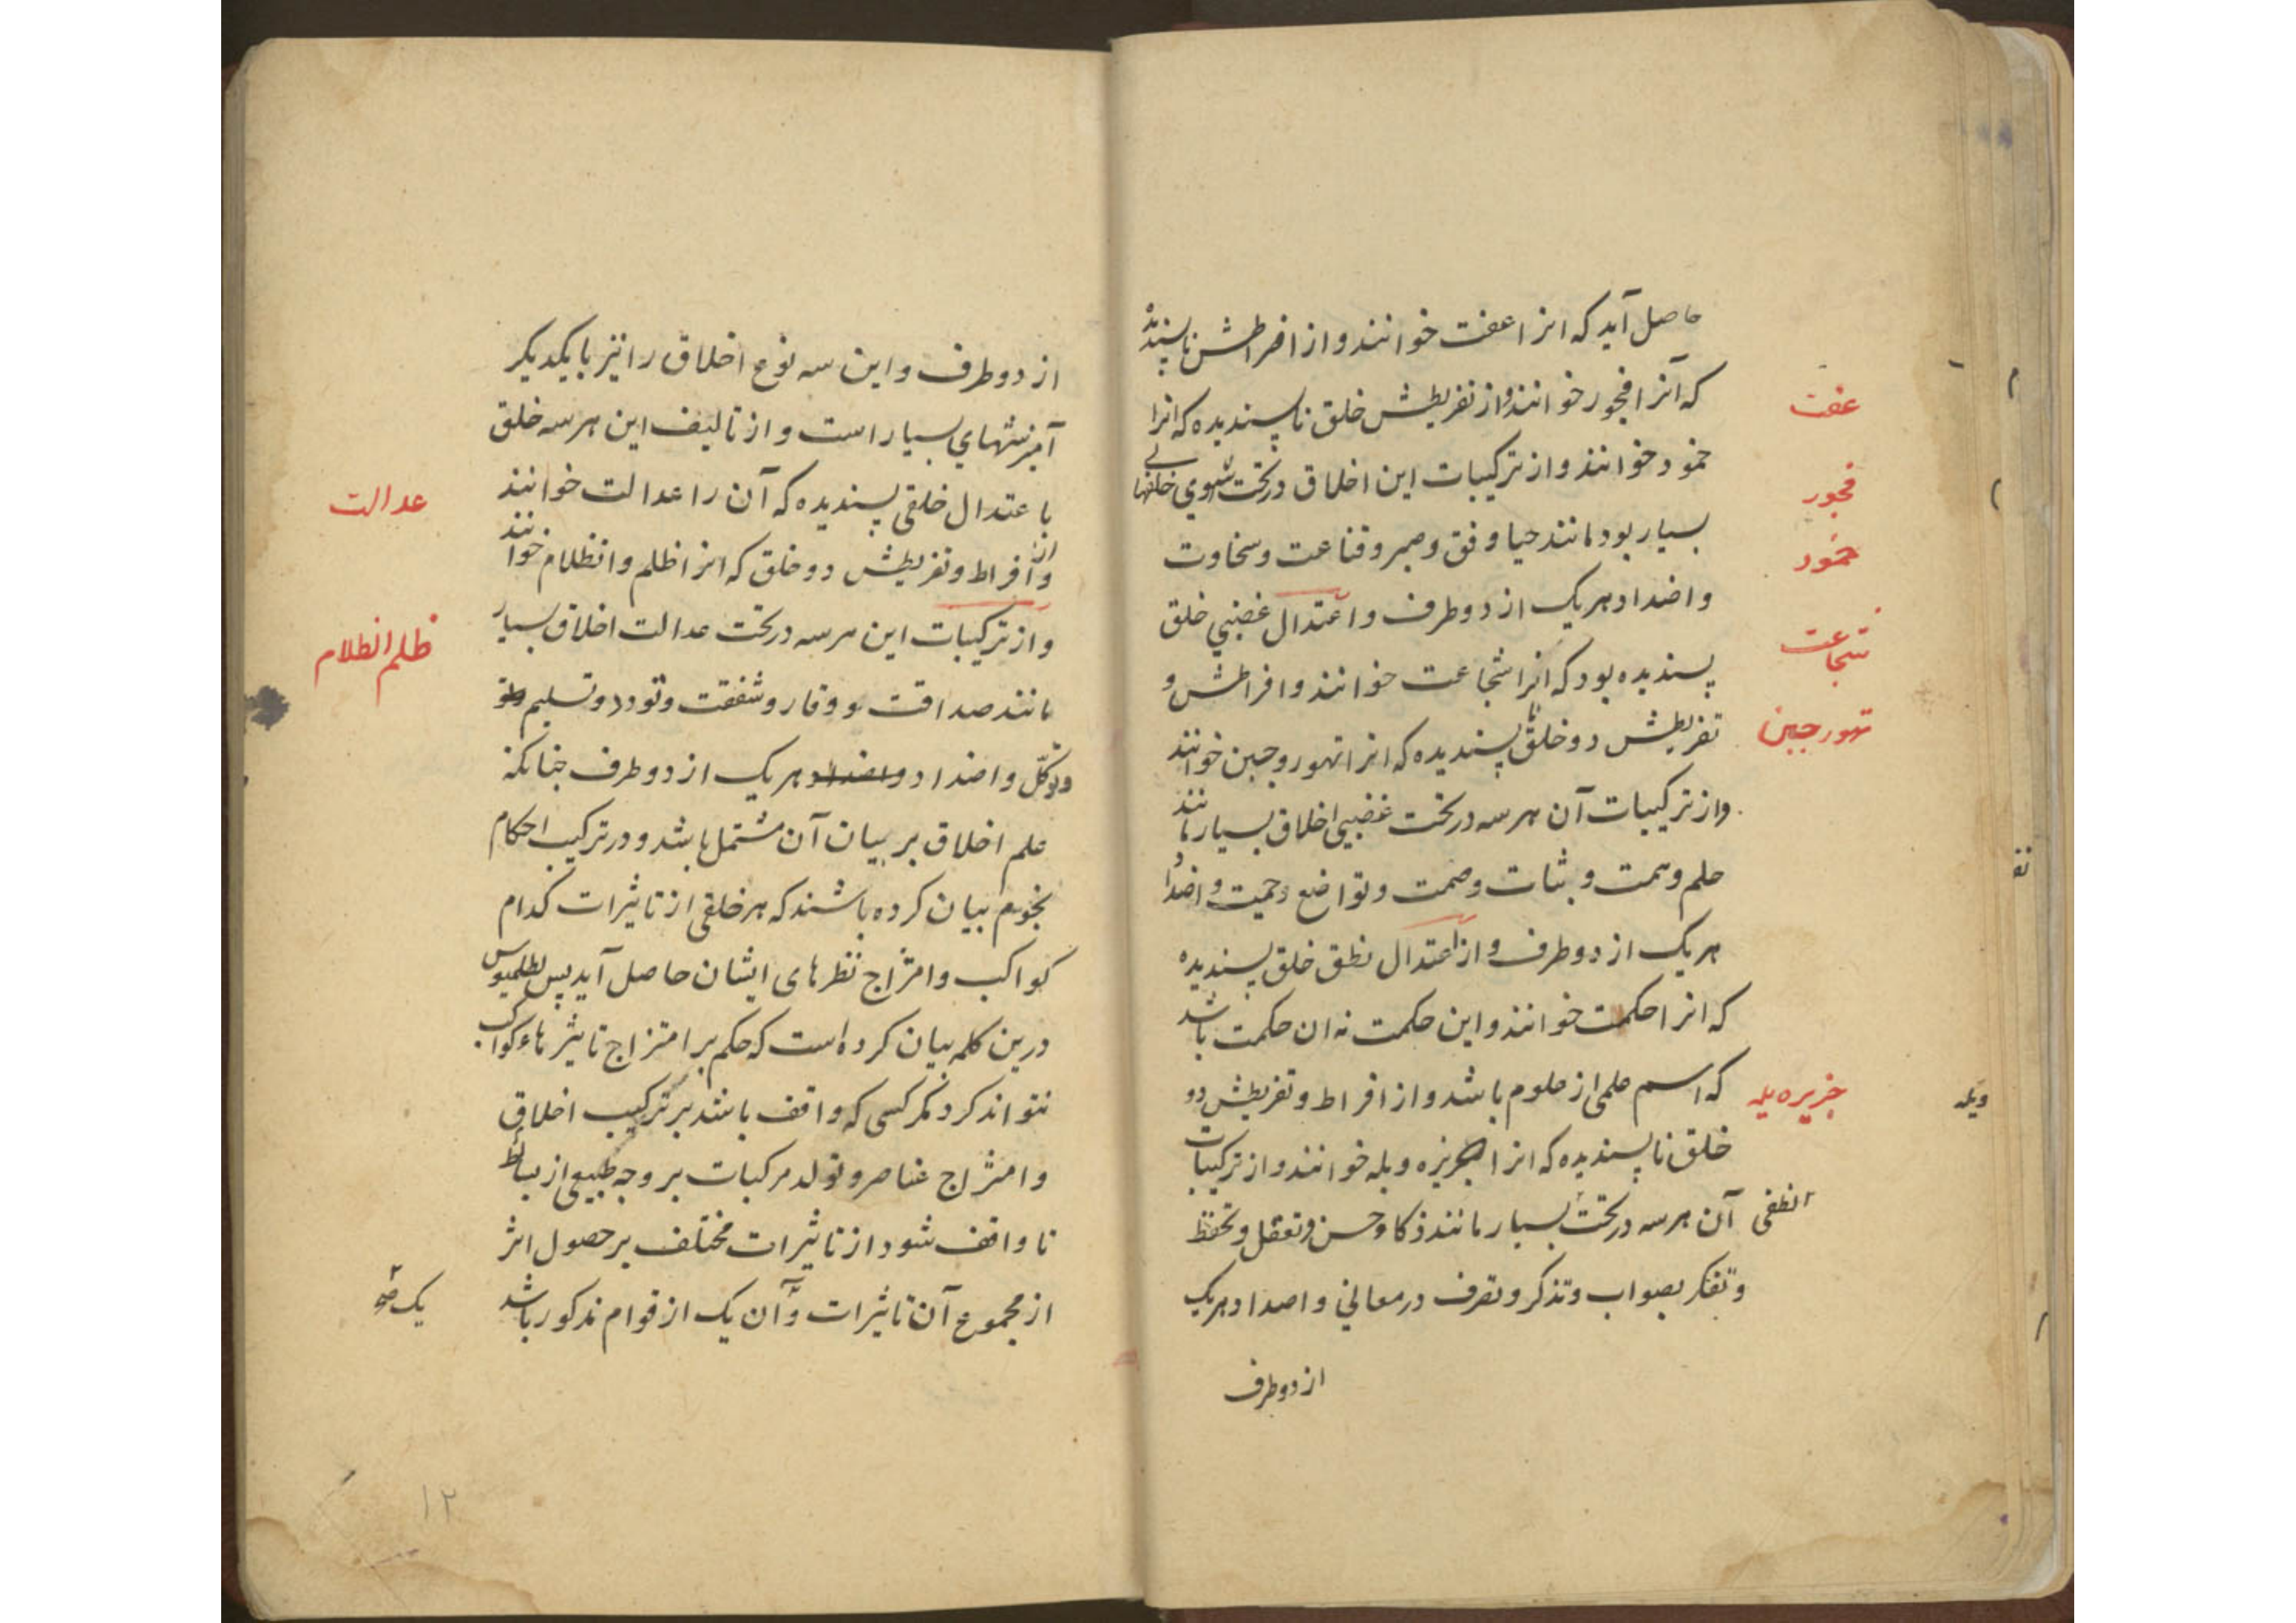 حاصل آید که انرا عفت خوانند و از افراطش ناپسندیده
که آنرا فجور خوانند و از تفریطش خلق ناپسندیده که انرا
خمود خوانند و از ترکیبات این اخلاق در تحت شهوی خلقهای
بسیار بود مانند حیا و رفق و صبر و قناعت و سخاوت
و اضداد هر یک از دو طرف و اعتدال غضبی خلق
پسندیده بود که انرا شجاعت خوانند و افراطش و
تفریطش دو خلق ناپسندیده که انرا تهور و جبن خوانند
و از ترکیبات آن هر سه در تحت غضبی اخلاق بسیار مانند
حلم و همت و ثبات و صمت و تواضع و حمیت و اضداد
هر یک از دو طرف و از اعتدال نطق خلق پسندیده
که انرا حکمت خوانند و این حکمت نه ان حکمت باشد
که اسم علمی از علوم باشد و از افراط و تفریطش دو
خلق ناپسندیده که انرا جربزه و بله خوانند و از ترکیبات
آن هر سه در تحت بسیار مانند ذکا و حسن و تعقل و تحفظ
و تفکر بصواب و تذکر و تصرف در معانی و اضداد هر یک
از دو طرف
عفت
فجور
خمود
شجاعت
تهور جبن
از دو طرف و این سه نوع اخلاق را نیز با یکدیگر
آمیزشهای بسیار است و از تالیف این هر سه خلق
باعتدال خلقی پسندیده که آن را عدالت خوانند
و از افراط و تفریطش دو خلق که انرا ظلم و انظلام خوانند
و از ترکیبات این هر سه در تحت عدالت اخلاق بسیار
مانند صداقت و وقار و شفقت و تودد و تسلیم
و توکّل و اضداد هر یک از دو طرف چنانکه
علم اخلاق بر بیان آن مشتمل باشد و در ترکیب احکام
نجوم بیان کرده باشند که هر خلقی از تاثیرات کدام
کواکب و امتزاج نظرهای ایشان حاصل آید پس بطلمیوس
درین کلمه بیان کرده است که حکم بر امتزاج تاثیرهاء کواکب
نتواند کرد مگر کسی که واقف باشد بر ترکیب اخلاق
و امتزاج عناصر و تولد مرکبات بر وجه طبیعی از بسائط
تا واقف شود از تاثیرات مختلف بر حصول اثر
از مجموع آن تاثیرات و آن یک از قوام مذکور باشد
عدالت
ظلم انظلام
۱۲